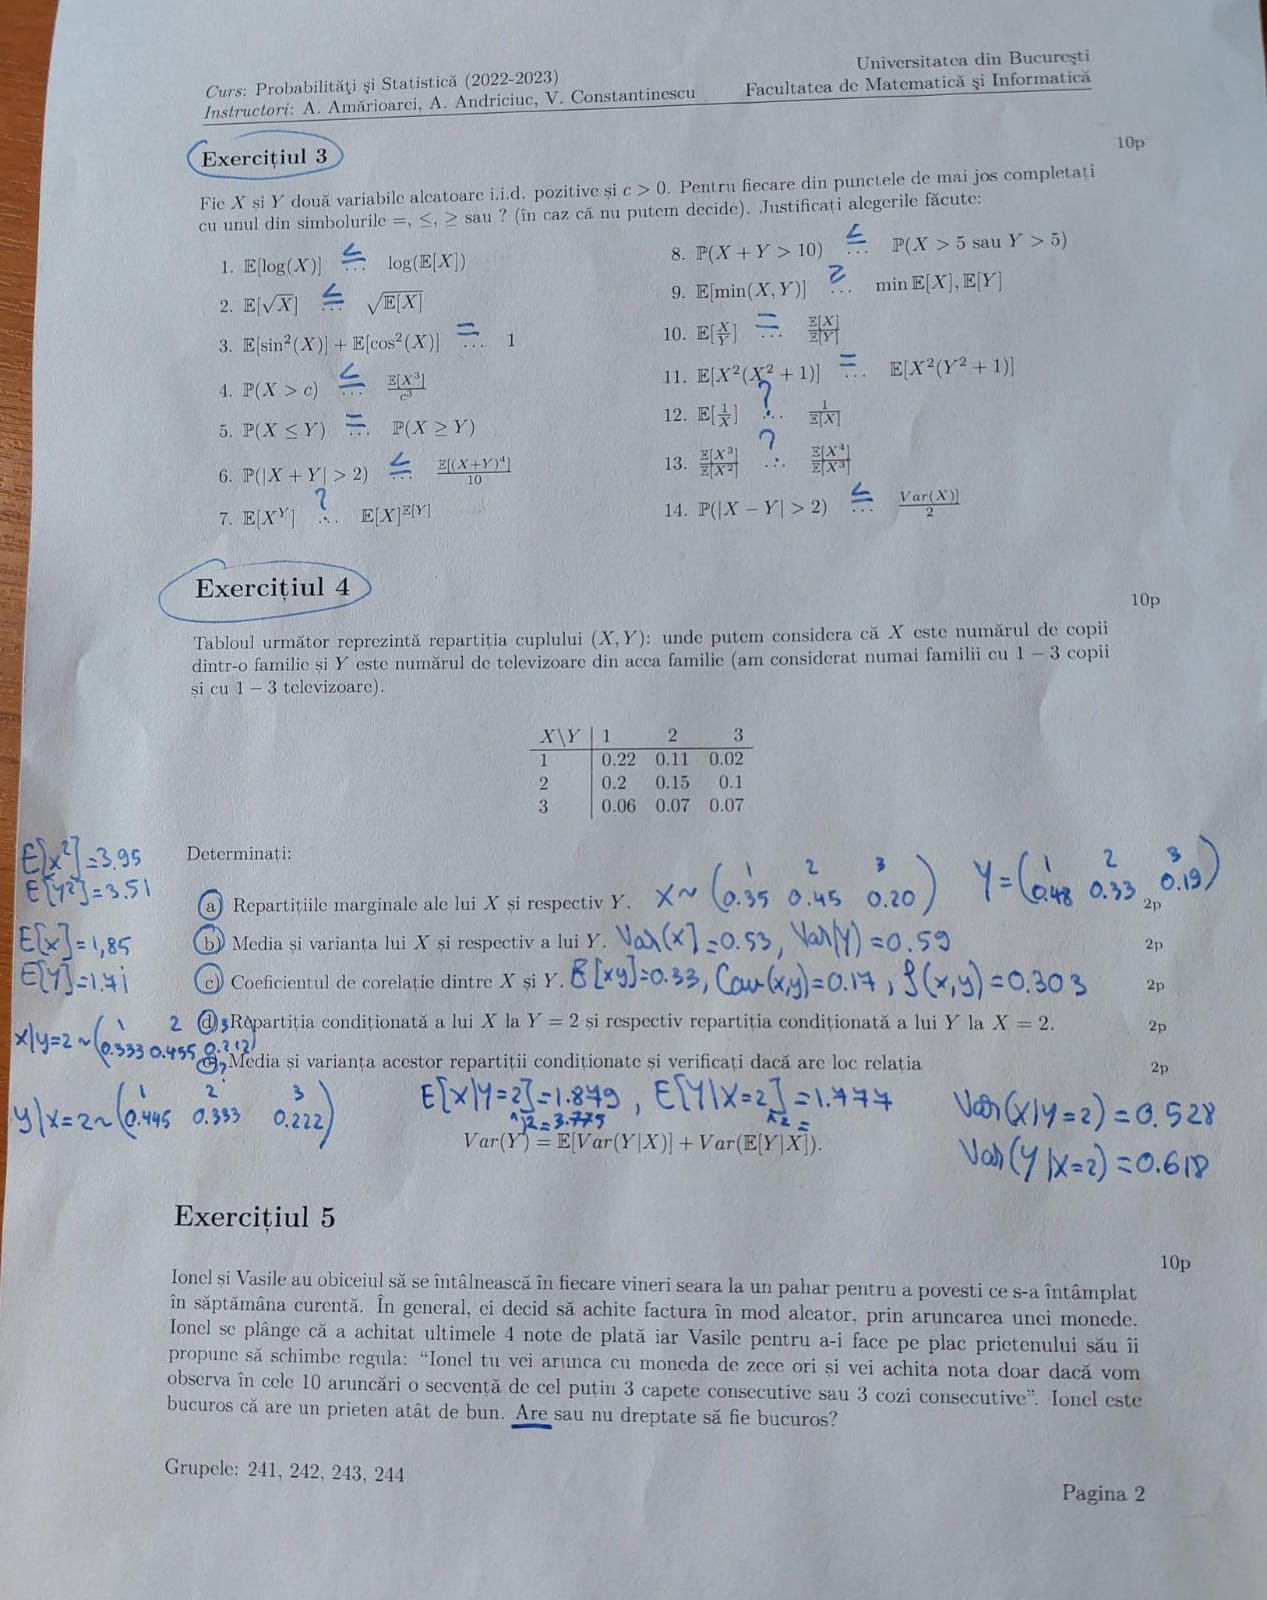 Curs: Probabilități și Statistică (2022-2023)
Instructori: A. Amărioarei, A. Andriciuc, V. Constantinescu
Universitatea din București
Facultatea de Matematică și Informatică
Exercițiul 3
10p
Fie X și Y două variabile aleatoare i.i.d. pozitive și c > 0. Pentru fiecare din punctele de mai jos completați
cu unul din simbolurile =, ≤, ≥ sau ? (în caz că nu putem decide). Justificați alegerile făcute:
1. E[log(X)] ≤ ... log(E[X])
2. E[√X] ≤ ... √E[X]
3. E[sin²(X)] + E[cos²(X)] = ... 1
4. P(X > c) ≤ ... E[X³]/c³
5. P(X ≤ Y) = ... P(X ≥ Y)
6. P(|X + Y| > 2) ≤ ... E[(X+Y)⁴]/10
7. E[X^Y] ? ... E[X]^E[Y]
8. P(X + Y > 10) ≤ ... P(X > 5 sau Y > 5)
9. E[min(X, Y)] ? ... min E[X], E[Y]
10. E[X/Y] = ... E[X]/E[Y]
11. E[X²(X² + 1)] = ... E[X²(Y² + 1)]
12. E[1/X] ? ... 1/E[X]
13. E[X³]/E[X²] ? ... E[X⁴]/E[X³]
14. P(|X − Y| > 2) ≤ ... Var(X)]/2
Exercițiul 4
10p
Tabloul următor reprezintă repartiția cuplului (X, Y): unde putem considera că X este numărul de copii
dintr-o familie și Y este numărul de televizoare din acea familie (am considerat numai familii cu 1 − 3 copii
și cu 1 − 3 televizoare).
X\Y 1 2 3
1 0.22 0.11 0.02
2 0.2 0.15 0.1
3 0.06 0.07 0.07
Determinați:
E[x²]=3.95
E[y²]=3.51
E[x]=1,85
E[Y]=1.71
a) Repartițiile marginale ale lui X și respectiv Y. X ~ (1 2 3
0.35 0.45 0.20) Y = (1 2 3
0.48 0.33 0.19)
2p
b) Media și varianța lui X și respectiv a lui Y. Var(x]=0.53, Var(Y)=0.59
2p
c) Coeficientul de corelație dintre X și Y. E[xy]=0.33, Cov(x,y)=0.17, ρ(x,y)=0.303
2p
d) Repartiția condiționată a lui X la Y = 2 și respectiv repartiția condiționată a lui Y la X = 2.
2p
x|y=2 ~ (1 2 3
0.333 0.455 0.212)
e) Media și varianța acestor repartiții condiționate și verificați dacă are loc relația
2p
y|x=2 ~ (1 2 3
0.445 0.333 0.222)
E[X|Y=2]=1.879, E[Y|X=2]=1.777
^2=3.775 ^2=
Var(X|Y=2)=0.528
Var(Y|X=2)=0.618
Var(Y) = E[Var(Y|X)] + Var(E[Y|X]).
Exercițiul 5
10p
Ionel și Vasile au obiceiul să se întâlnească în fiecare vineri seara la un pahar pentru a povesti ce s-a întâmplat
în săptămâna curentă. În general, ei decid să achite factura în mod aleator, prin aruncarea unei monede.
Ionel se plânge că a achitat ultimele 4 note de plată iar Vasile pentru a-i face pe plac prietenului său îi
propune să schimbe regula: “Ionel tu vei arunca cu moneda de zece ori și vei achita nota doar dacă vom
observa în cele 10 aruncări o secvență de cel puțin 3 capete consecutive sau 3 cozi consecutive”. Ionel este
bucuros că are un prieten atât de bun. Are sau nu dreptate să fie bucuros?
Grupele: 241, 242, 243, 244
Pagina 2